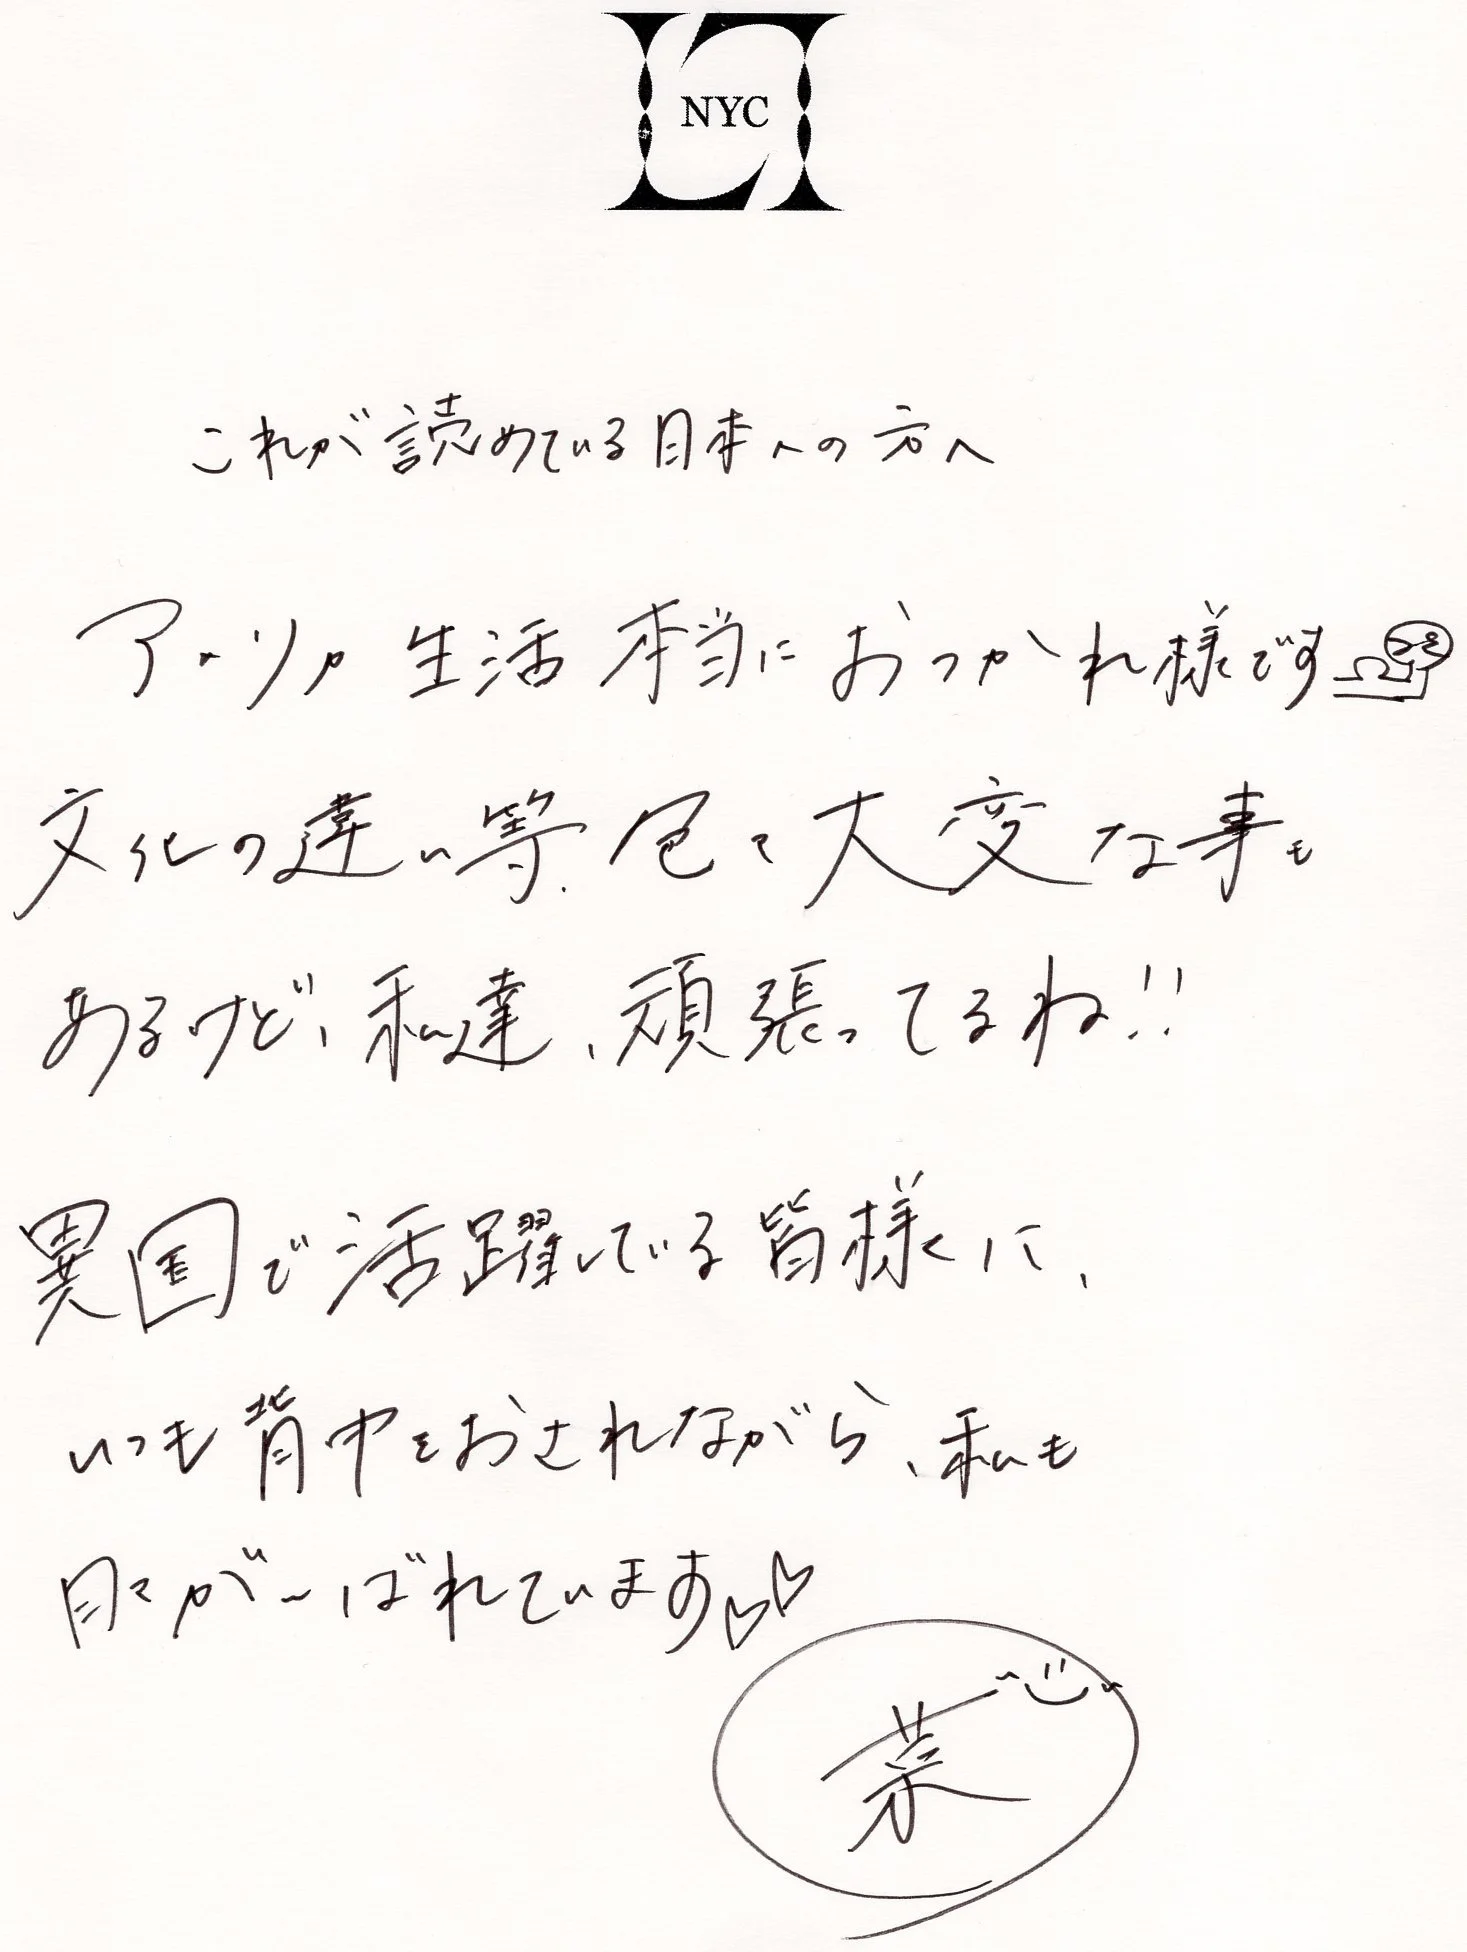 NYC
これが読めている日本人の方へ
アメリカ生活本当におつかれ様です
文化の違い等、色々大変な事も
あるけど、私達、頑張ってるね!!
異国で活躍している皆様に、
いつも背中をおされながら、私も
日々がんばれています♡♡
菜